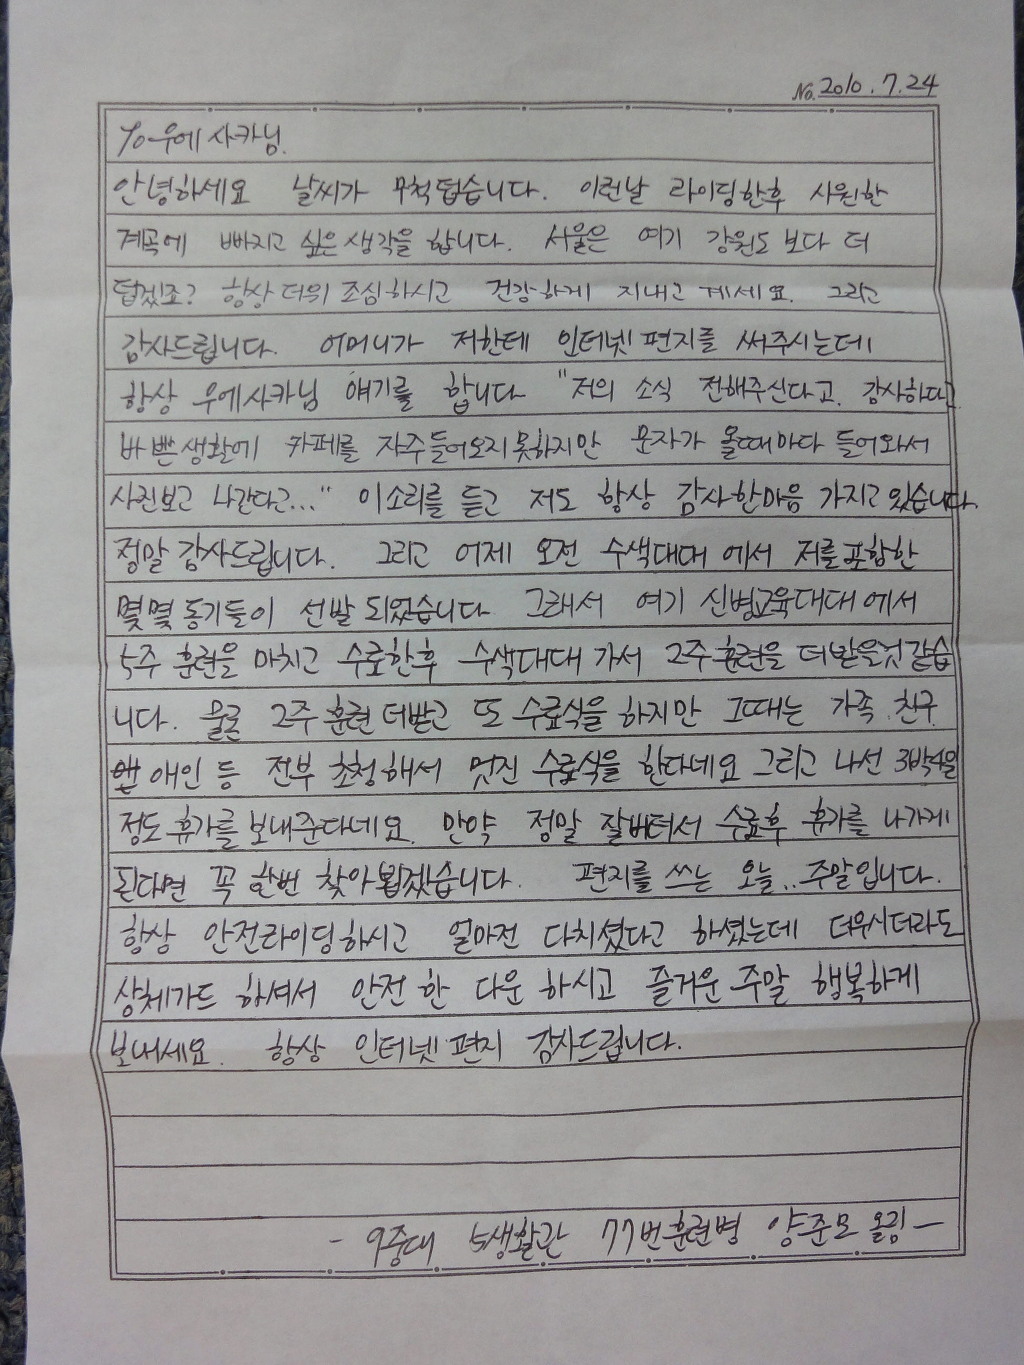 No. 2010. 7. 24
To 우에사카님.
안녕하세요 날씨가 무척덥습니다. 이런날 라이딩한후 시원한
계곡에 빠지고 싶은생각을 합니다. 서울은 여기 강원도 보다 더
덥겠죠? 항상 더위 조심하시고 건강하게 지내고 계세요. 그리고
감사드립니다. 어머니가 저한테 인터넷 편지를 써주시는데
항상 우에사카님 얘기를 합니다 "저의 소식 전해주신다고. 감사하다고
바쁜생활에 카페를 자주들어오지못하지만 문자가 올때마다 들어와서
사진보고 나간다고..." 이소리를 듣고 저도 항상 감사한마음 가지고있습니다.
정말 감사드립니다. 그리고 어제 오전 수색대대 에서 저를포함한
몇몇 동기들이 선발 되었습니다 그래서 여기 신병교육대대 에서
5주 훈련을 마치고 수료한후 수색대대 가서 2주훈련을 더받을것 같습
니다. 물론 2주 훈련 더받고 또 수료식을 하지만 그때는 가족, 친구
애인 등 전부 초청해서 멋진 수료식을 한다네요 그리고 나선 3박4일
정도 휴가를 보내준다네요. 만약 정말 잘버텨서 수료후 휴가를 나가게
된다면 꼭 한번 찾아뵙겠습니다. 편지를 쓰는 오늘.. 주말입니다.
항상 안전라이딩하시고 얼마전 다치셨다고 하셨는데 더우시더라도
상체가드 하셔서 안전 한 다운 하시고 즐거운 주말 행복하게
보내세요. 항상 인터넷 편지 감사드립니다.
- 9중대 5생활관 77번훈련병 양준모 올림 -